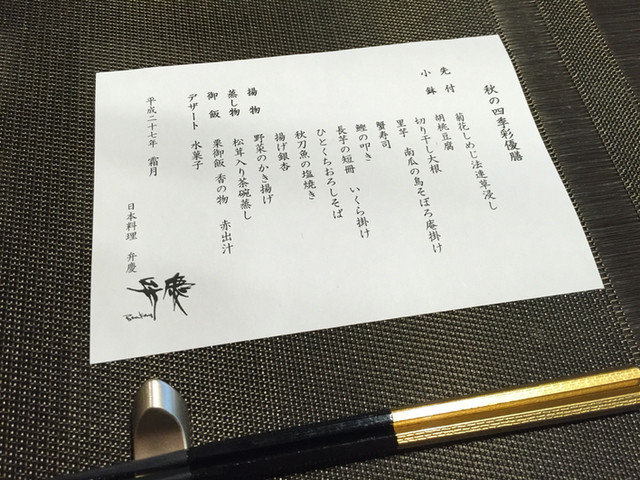 秋の四季彩優膳
先付 菊花しめじ法連草浸し
胡桃豆腐
小鉢 切り干し大根
里芋・南瓜の鳥そぼろ庵掛け
蟹寿司
鰹の叩き
長芋の短冊 いくら掛け
ひとくちおろしそば
秋刀魚の塩焼き
揚げ銀杏
揚物 野菜のかき揚げ
蒸し物 松茸入り茶碗蒸し
御飯 栗御飯 香の物 赤出汁
デザート 水菓子
平成二十七年 霜月
日本料理 弁慶
弁慶
Benkay